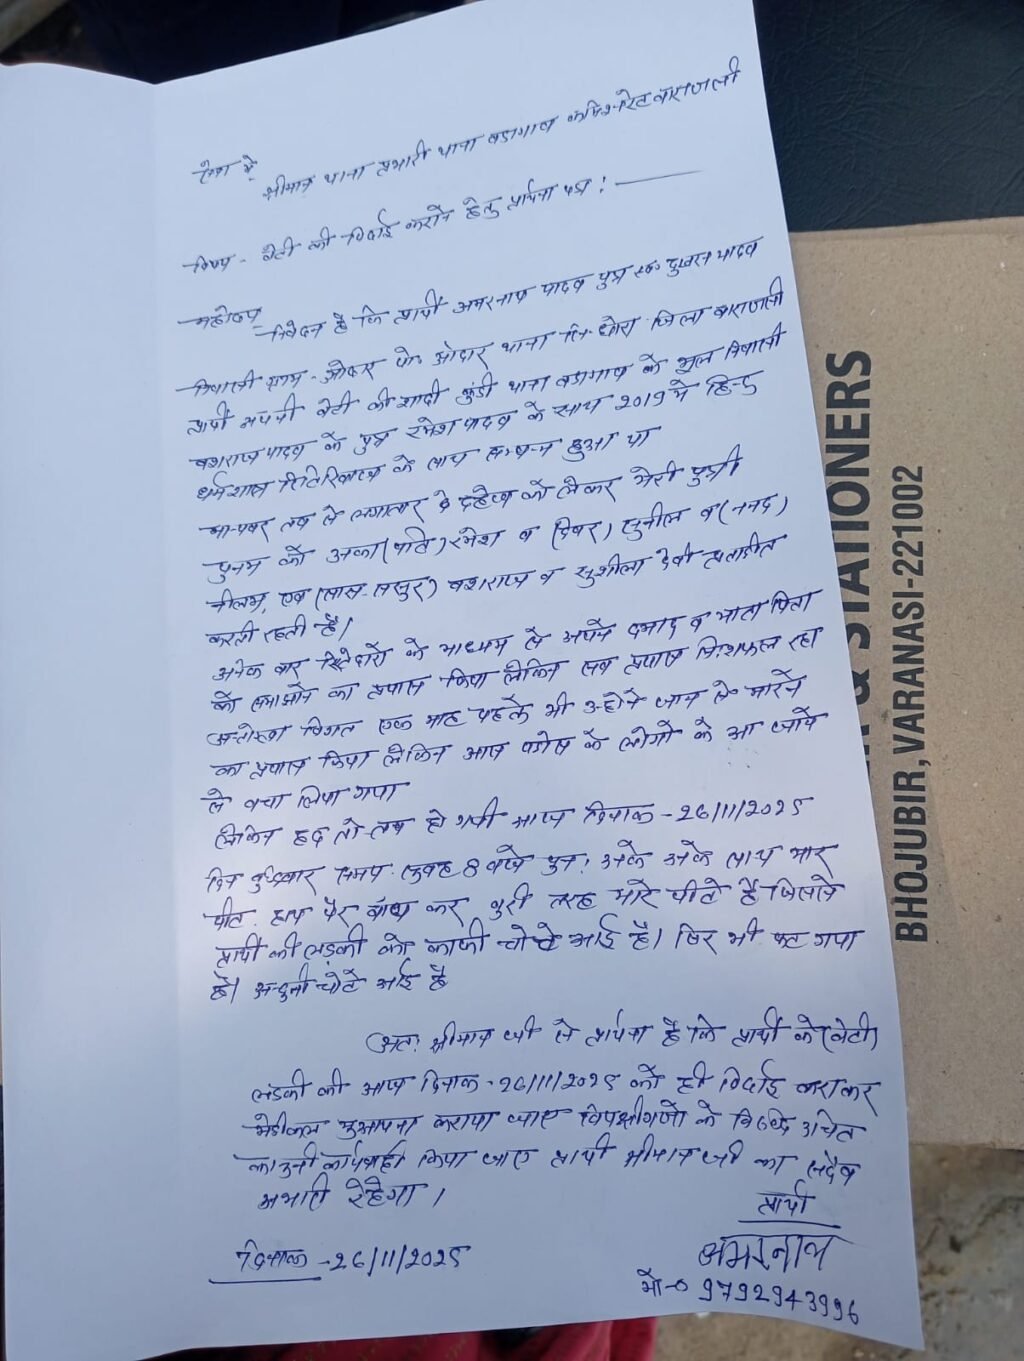 सेवा में
श्रीमान थाना प्रभारी थाना बडागाव कमिश्नरेट वाराणसी
विषय - बेटी की विदाई कराने हेतु प्रार्थना पत्र : —
महोदय
निवेदन है कि प्रार्थी अमरनाथ यादव पुत्र स्व० दुखरन यादव
निवासी ग्राम - ओदार पो० ओदार थाना सिन्धोरा जिला वाराणसी
प्रार्थी अपनी बेटी की शादी कुंडी थाना बडागाव के मूल निवासी
यशराज यादव के पुत्र रमेश यादव के साथ 2019 मे हिन्दु
धर्मशास्त्र रितिरिवाज के साथ सम्पन्न हुआ था
मान्यवर तब से लगातार दहेज को लेकर मेरी पुत्री
पुनम को उनका (पति) रमेश व (देवर) सुनील व (ननद)
नीलम, एव (सास-ससुर) यशराज व सुशीला देवी प्रताडीत
करती रहती है।
अनेक बार रिस्तेदारो के माध्यम से अपने दमाद व माता पिता
को समाझाने का प्रयास किया लेकिन सब प्रयास निःशफल रहा
अन्तोगत्वा विगत एक माह पहले भी उन्होने जान से मारने
का प्रयास किया लेकिन आस पडोस के लोगो के आ जाने
से बचा लिया गया
लेकिन हद तो तब हो गयी आज दिनाक - 26/11/2025
दिन बुद्धवार समय सुबह 8 बजे पुनः उनके साथ मार
पीट. हाथ पैर बांध कर बुरी तरह मारे पीटे है जिससे
प्रार्थी की लड़की को काफी चोटे आई है। सिर भी फट गया
है। अन्दुनी चोटे आई है
अतः श्रीमान जी से प्रार्थना है कि प्रार्थी के (बेटी)
लडकी की आज दिनाक - 26/11/2025 को ही विदाई कराकर
मेडीकल मुआयना कराया जाए विपक्षीगणो के विरुद्ध उचित
कानुनी कार्यवाही किया जाए प्रार्थी श्रीमान जी का सदैव
अभारी रहेगा ।
प्रार्थी
दिनाक - 26/11/2025
अमरनाथ
मो-० 9792943996
& STATIONERS
BHOJUBIR, VARANASI-221002